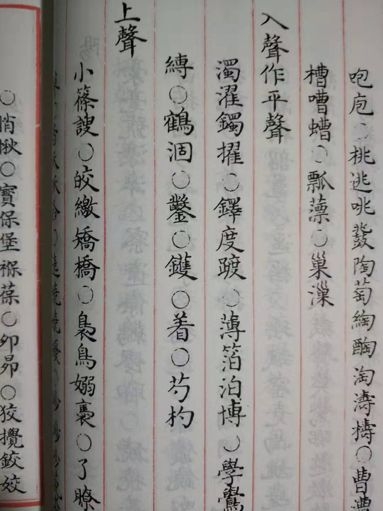 咆庖○桃逃咷鼗陶萄綯醄淘濤檮○曹
槽嘈螬○瓢薸○巢漅
入聲作平聲
濁濯鐲擢○鐸度踱○薄箔泊博○學鷽
縛○鶴涸○鑿○鑊○着○芍杓
上聲
小篠謏○皎繳矯撟○裊鳥嫋褭○了瞭
○寶保堡褓葆○卯昴○狡攪鉸姣